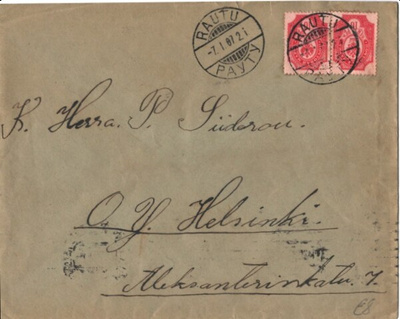 RAUTU
-7.I.07.2 i
РАУТУ
RAUTU
K. Herra. P. Süderou.
O. Y. Helsinki.
Aleksanterinkatu. 7.